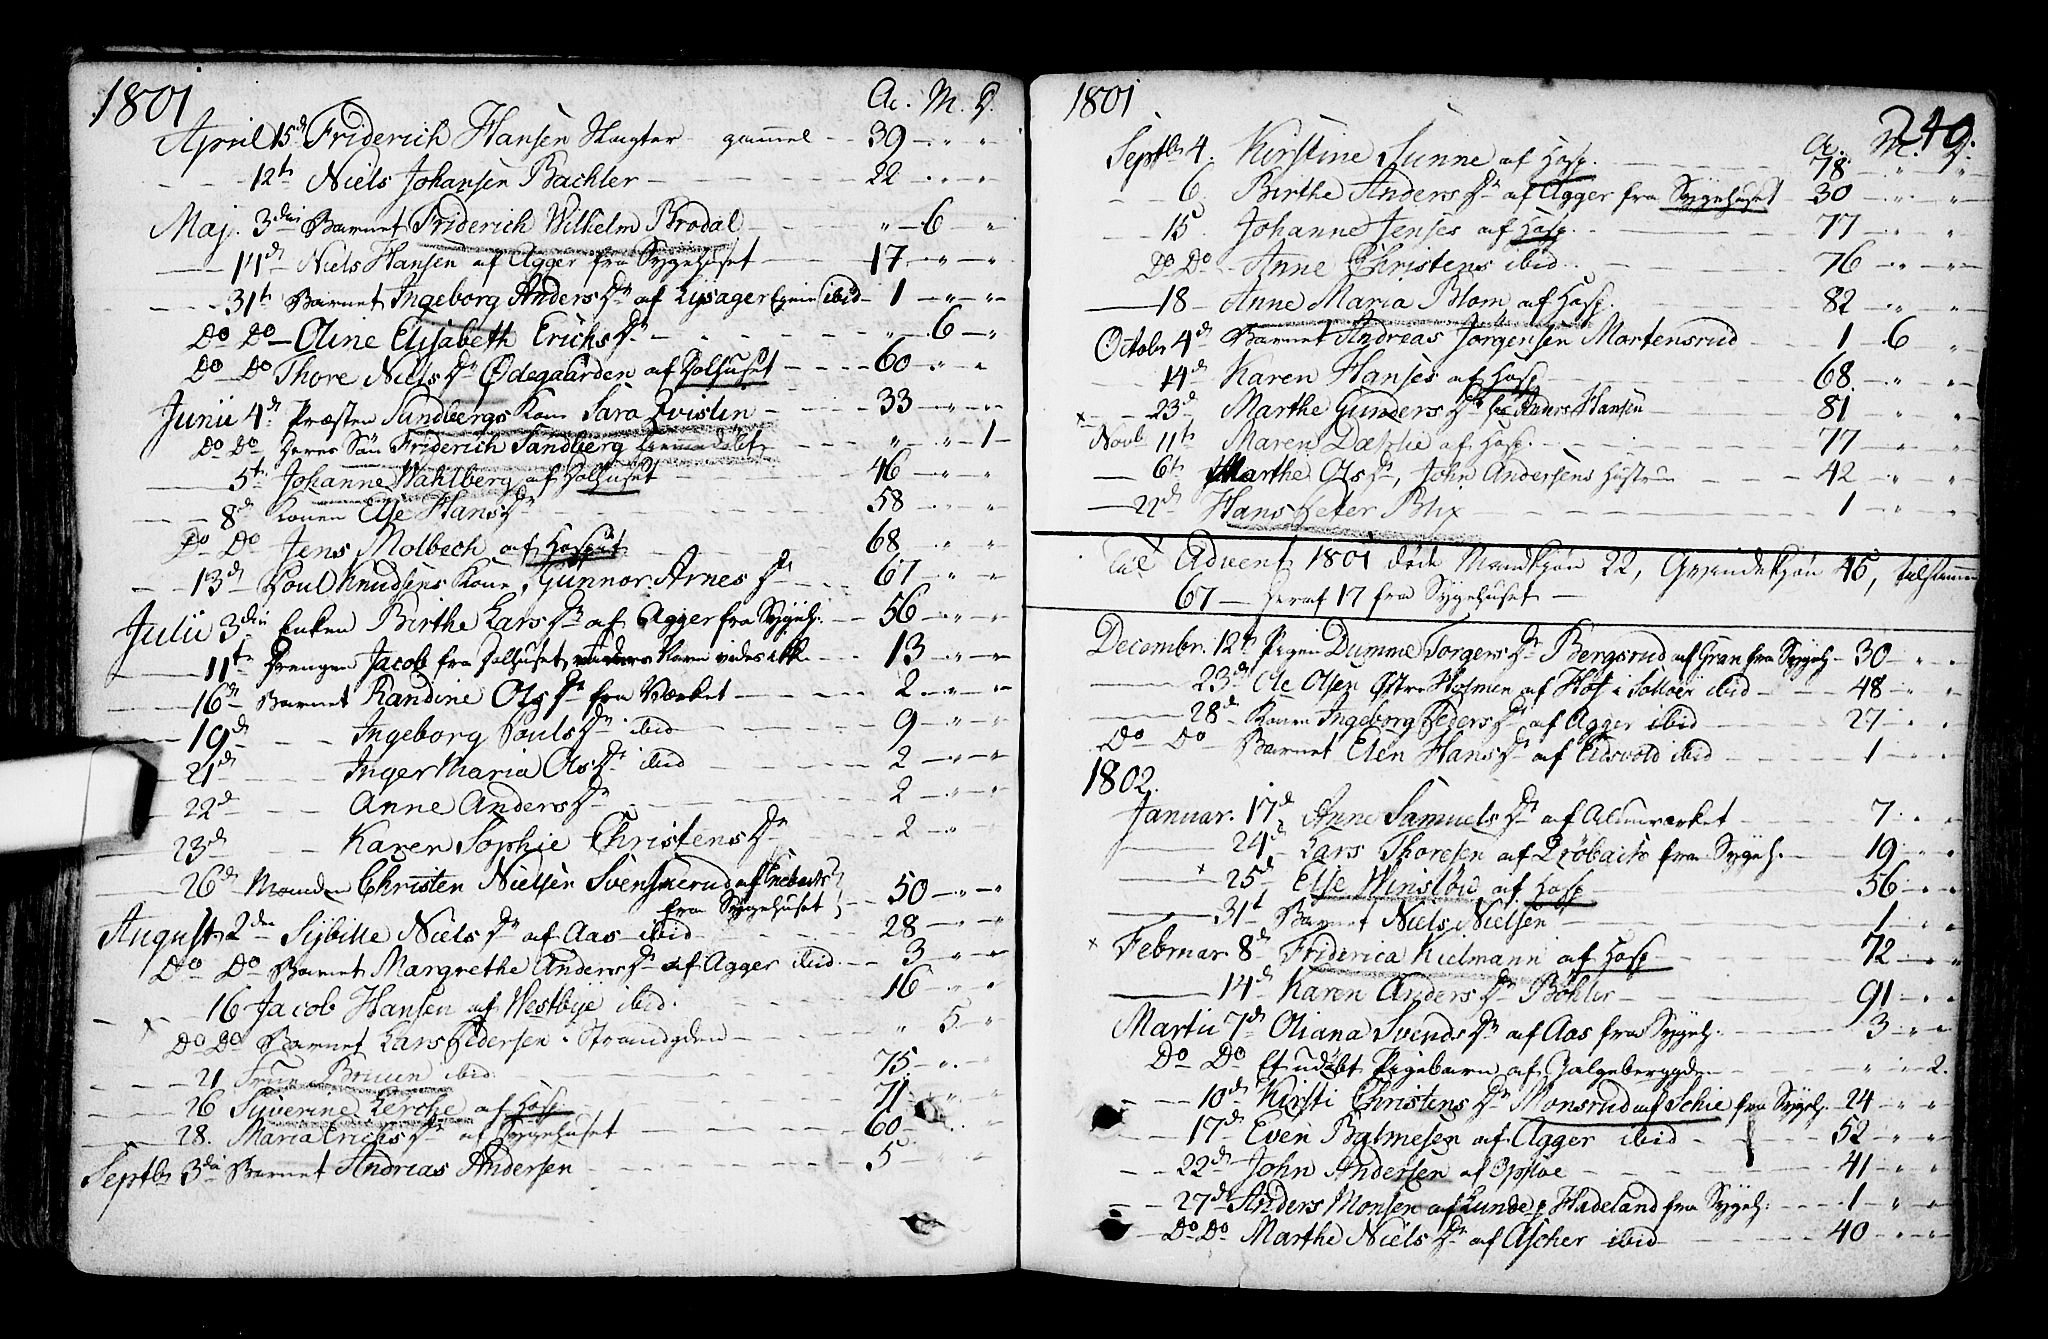 1801
A. M. D.
April 15d Friderich Hansen Slagter gammel 39
12te Niels Johansen Bachler 22
Maj. 3die Barnet Friderich Wilhelm Brodal 6
14d Niels Hansen af Agger fra Sygehuset 17
31t Barnet Ingeborg Anders Dr af ibid 1
Do Do Oline Elisabeth Erichs Dr 6
Do Do Thore Niels Dr Ødegaarden af Dolhuset 60
Junii 4de Præsten Sundbergs Kone Sara Qvistin 33
Do Do Deres Søn Friderich Sandberg 1
5te Johanne Wahlberg af Dolhuset 46
8d Konen Else Hans Dr 58
Do Do Jens Molbech af Hosp. 68
13d Poul Knudsens Kone, Gunnor Arnes Dr 67
Julii 3die Enken Birthe Lars Dr af Agger fra Sygeh. 56
11te Drengen Jacob fra Dolhuset, Navn vides ikke 13
16de Barnet Randine Ols Dr fra Værket 2
19d Ingeborg Pouls Dr ibid 9
21d Inger Maria Ols Dr ibid 2
22d Anne Anders Dr 2
23d Karen Sophie Christens Dr 2
26de Manden Christen Nielsen Svensnerud af Enebach
fra Sygehuset 50
August 2den Sybille Niels Dr af Aas ibid 28
Do Do Barnet Margrethe Anders Dr af Agger ibid 3
16 Jacob Hansen af Westbye ibid. 16
Do Do Barnet Lars Pedersen Strandgden 5
21 Frue Bruun ibid 75
26 Suverine Lerche af Hosp 71
28. Maria Erichs Dr af Sygehuset 60
Septbr 3die Barnet Andreas Andersen 5
1801
240.
A. M. D.
Septbr 4. Kirstine Sunne af Hosp. 78
6. Birthe Anders Dr af Agger fra Sygehuset 30
15. Johanne Jenses af Hosp. 77
Do Do Anne Christens ibid 76
18 Anne Maria Blom af Hosp. 82
Octobr 4d Barnet Andreas Jørgensen Mortensrud 1 6
14d Karen Hanses af Hosp 68
x 23d Marthe Gunders Dr Hansen 81
Novbr 11te Maren Dæhlie af Hosp. 77
6te Marthe Ols Dr, John Andersens Hustrue 42
22d Hans Peter Blix 1
Til Advent 1801 døde Mandkjøn 22, Qvindekjøn 45, tilsammen
67 — Heraf 17 fra Sygehuset —
Decembr. 12te Pigen Dumme Torgers Dr Bergsrud af Gran fra Sygeh. 30
23d Ole Olsen Østre Holmen af Høf i Solloer ibid 48
28d Konen Ingeborg Peders Dr af Agger ibid 27
Do Do Barnet Elen Hans Dr af Eidsvold ibid 1
1802.
Januar. 17d Anne Samuels Dr af Alunværket 7
24d Lars Thoresen af Drøbach fra Sygeh. 19
x 25d Else Winsløw af Hosp 56
31t Barnet Niels Nielsen 1
x Februar 8d Friderica Kielmann af Hosp 72
14d Karen Anders Dr Bøhler 91
Martii 7d Oliana Svends Dr af Aas fra Sygeh. 3
Do Do Et udøbt Pigebarn af Galgeberggden 2.
10d Kirsti Christens Dr Monsrud af Schie fra Sygeh. 24
17d Even Balmesen af Agger ibid 52
22d John Andersen af Opsloe 41
27d Anders Monsen af Lunde p. Hadeland fra Sygeh. 1
Do Do Marthe Niels Dr af Ascher ibid 40